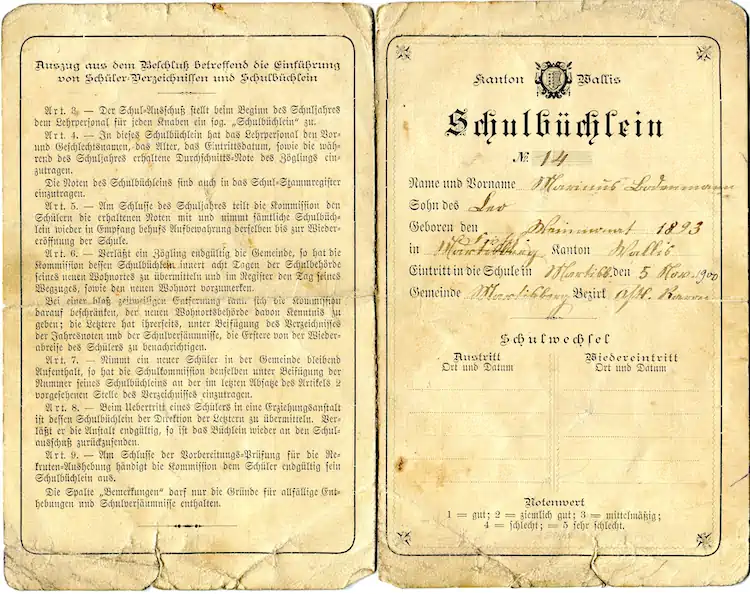 Auszug aus dem Beschluß betreffend die Einführung
von Schüler-Verzeichnissen und Schulbüchlein
Art. 3. — Der Schul-Ausschuß stellt beim Beginn des Schuljahres
dem Lehrpersonal für jeden Knaben ein sog. „Schulbüchlein“ zu.
Art. 4. — In dieses Schulbüchlein hat das Lehrpersonal den Vor-
und Geschlechtsnamen, das Alter, das Eintrittsdatum, sowie die wäh-
rend des Schuljahres erhaltene Durchschnitts-Note des Zöglings ein-
zutragen.
Die Noten des Schulbüchleins sind auch in das Schul-Stammregister
einzutragen.
Art. 5. — Am Schlusse des Schuljahres teilt die Kommission den
Schülern die erhaltenen Noten mit und nimmt sämtliche Schulbüch-
lein wieder in Empfang behufs Aufbewahrung derselben bis zur Wieder-
eröffnung der Schule.
Art. 6. — Verläßt ein Zögling endgültig die Gemeinde, so hat die
Kommission dessen Schulbüchlein innert acht Tagen der Schulbehörde
seines neuen Wohnortes zu übermitteln und im Register den Tag seines
Wegzuges, sowie den neuen Wohnort vorzumerken.
Bei einer bloß zeitweiligen Entfernung kann sich die Kommission
darauf beschränken, der neuen Wohnortsbehörde davon Kenntnis zu
geben; die Letztere hat ihrerseits, unter Beifügung des Verzeichnisses
der Jahresnoten und der Schulversäumnisse, die Erstere von der Wieder-
abreise des Schülers zu benachrichtigen.
Art. 7. — Nimmt ein neuer Schüler in der Gemeinde bleibend
Aufenthalt, so hat die Schulkommission denselben unter Beifügung der
Nummer seines Schulbüchleins an der im letzten Absatze des Artikels 2
vorgesehenen Stelle des Verzeichnisses einzutragen.
Art. 8. — Beim Uebertritt eines Schülers in eine Erziehungsanstalt
ist dessen Schulbüchlein der Direktion der Letztern zu übermitteln. Ver-
läßt er die Anstalt endgültig, so ist das Büchlein wieder an den Schul-
ausschuß zurückzusenden.
Art. 9. — Am Schlusse der Vorbereitungs-Prüfung für die Re-
kruten-Aushebung händigt die Kommission dem Schüler endgültig sein
Schulbüchlein aus.
Die Spalte „Bemerkungen“ darf nur die Gründe für allfällige Ent-
hebungen und Schulversäumnisse enthalten.
Kanton Wallis
Schulbüchlein
№ 14
Name und Vorname Marinus Bodenmann
Sohn des Leo
Geboren den Weinmonat 1893
in Martisberg Kanton Wallis
Eintritt in die Schule in Martisb. den 5 Nov. 1900
Gemeinde Martisberg Bezirk Raron
Schulwechsel
Austritt
Ort und Datum
Wiedereintritt
Ort und Datum
Notenwert
1 = gut; 2 = ziemlich gut; 3 = mittelmäßig;
4 = schlecht; = 5 sehr schlecht.